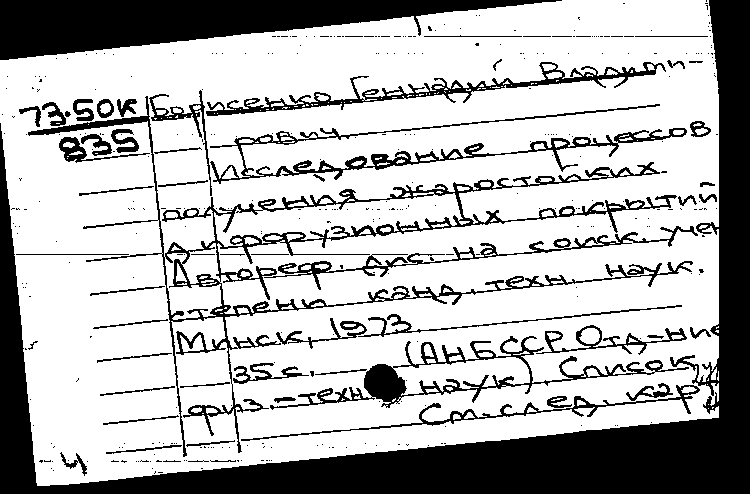 73.50к Борисенко, Геннадий Владими-
835 рович.
Исследование процессов
получения жаростойких
диффузионных покрытий
Автореф. дис. на соиск. учен
степени канд. техн. наук.
Минск, 1973.
35 с. (АНБССР. Отд-ние
физ.-техн наук). Список
См. след. кар